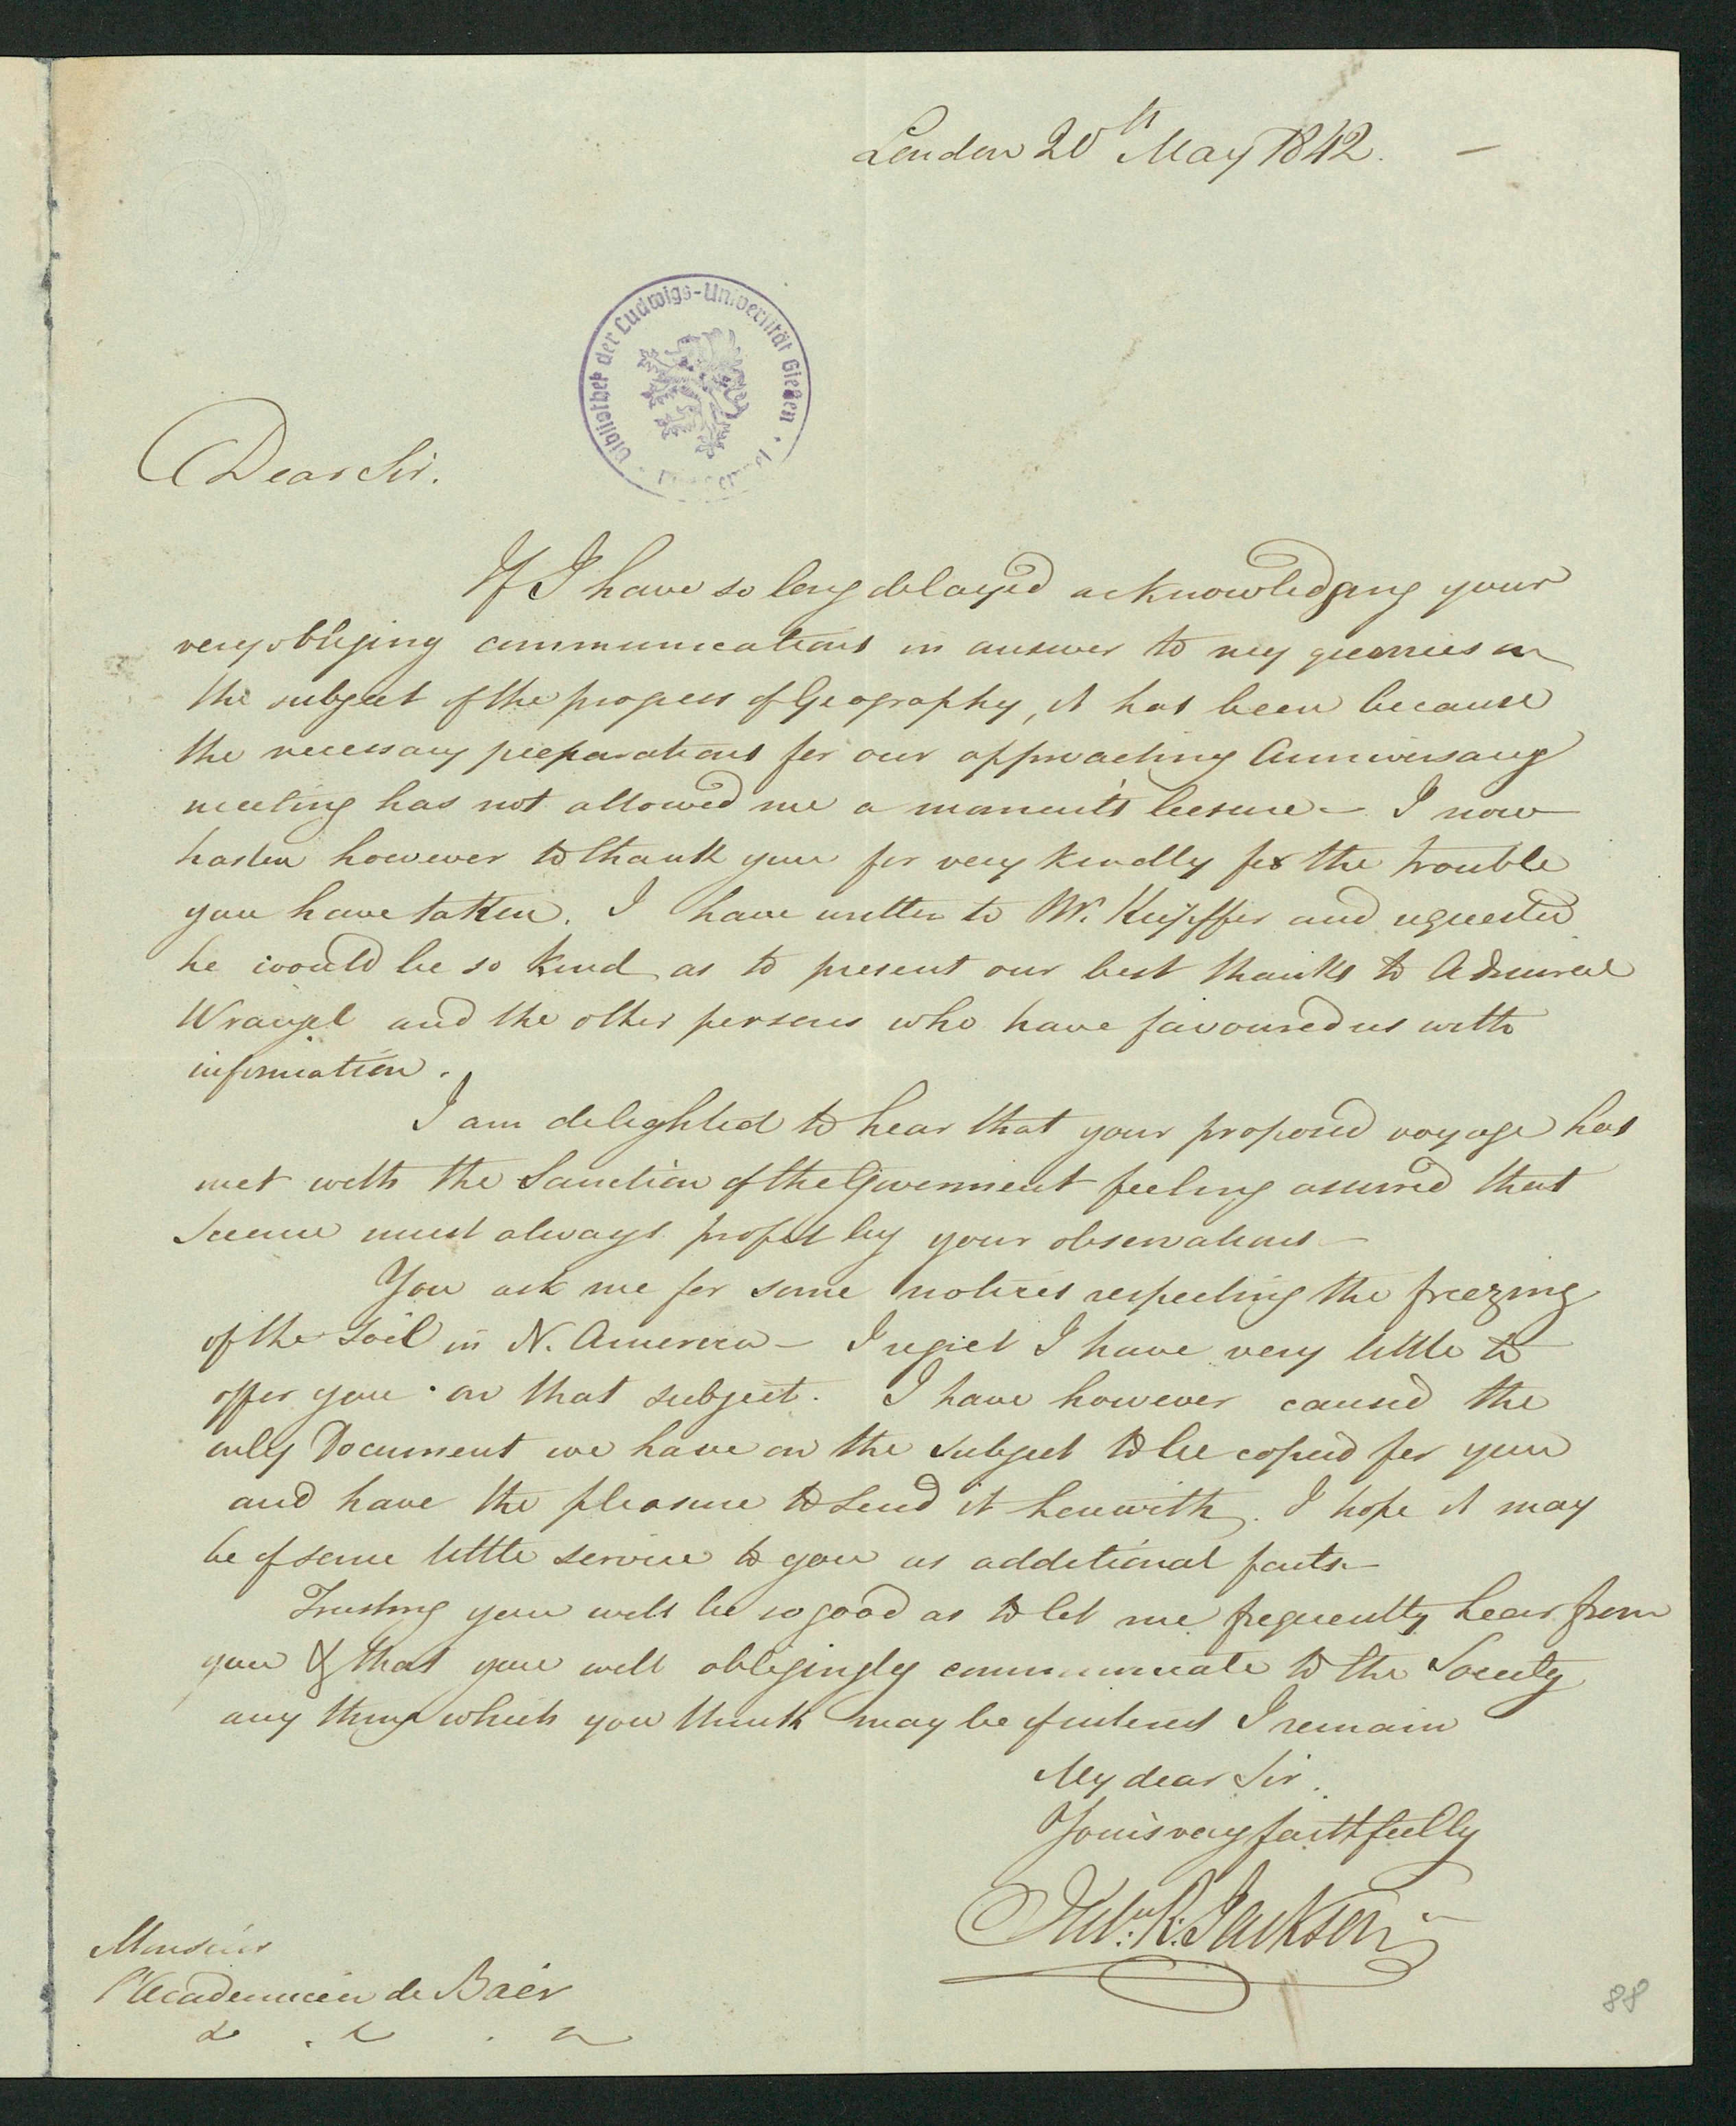 London 20th May 1842. —
Bibliothek der Ludwigs-Universität Gießen
Dear Sir.
If I have so long delayed acknowledging your
very obliging communications in answer to my queries on
the subject of the progress of Geography, it has been because
the necessary preparations for our approaching Anniversary
meeting has not allowed me a moment's leesure — I now
hasten however to thank you for very kindly for the trouble
you have taken. I have written to Mr. Kupffer and requested
he would be so kind as to present our best thanks to Admiral
Wrangel and the other persons who have favoured us with
information.
I am delighted to hear that your proposed voyage has
met with the Sanction of the Government feeling assured that
Science must always profit by your observations —
You ask me for some notices respecting the freezing
of the Soil in N. America — I regret I have very little to
offer you on that subject. I have however caused the
only Document we have on the subject to be copied for you
and have the pleasure to send it herewith. I hope it may
be of some little service to you as additional facts —
Trusting you will be so good as to let me frequently hear from
you & that you will obligingly communicate to the Society
any thing which you think may be of interest I remain
My dear Sir.
Yours very faithfully
R. Jackson
Monsieur
l'Academicien de Baër
88